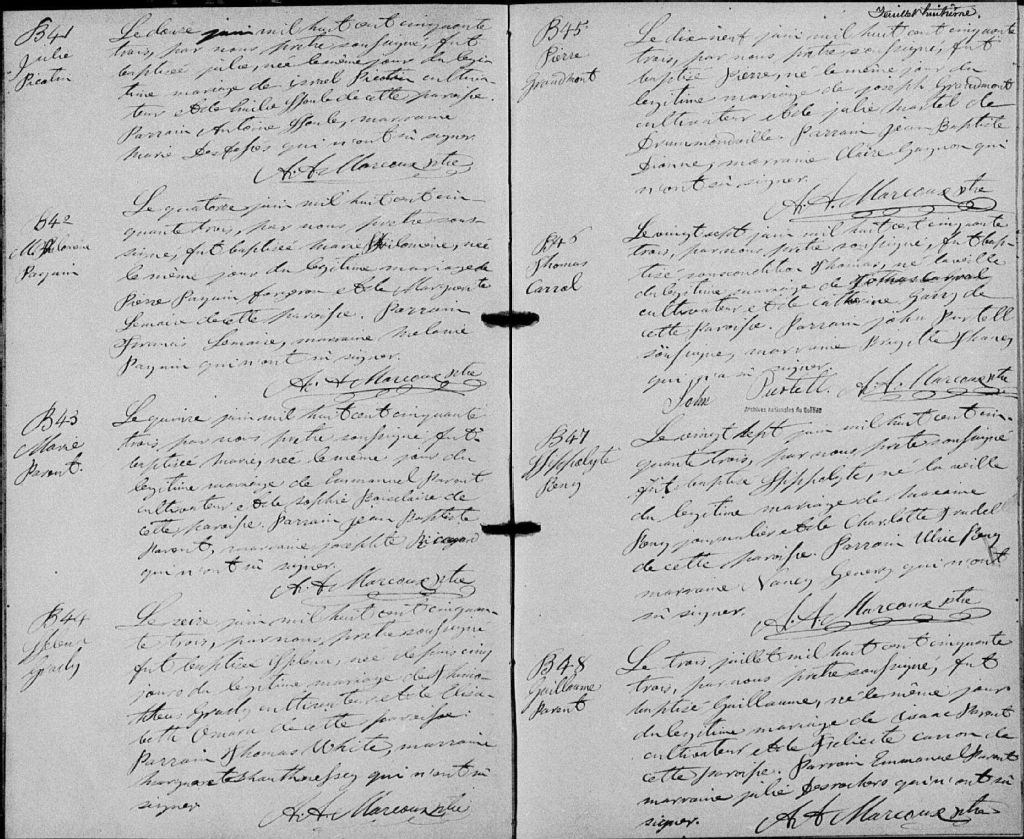 B41
Julie
Picotin
Le douze juin mil huit cent cinquante
trois, par nous prêtre soussigné, fut
baptisée julie, née le même jour du légi-
time mariage de israel Picotin cultiva-
teur et de Emilie Houle de cette paroisse.
Parrain Antoine Houle, marraine
Marie qui n'ont sû signer.
A. A. Marcoux ptre
B42
M. Philomène
Paquin
Le quatorze juin mil huit cent cin-
quante trois, par nous, prêtre sous-
signé, fut baptisée Marie Philomène, née
le même jour du légitime mariage de
Pierre Paquin forgeron et de Marguerite
Lemaire de cette paroisse. Parrain
Francis Lemaire, marraine Melanie
Paquin qui n'ont sû signer.
A. A. Marcoux ptre
B43
Marie
Parent
Le quinze juin mil huit cent cinquante
trois, par nous prêtre soussigné, fut
baptisée Marie, née le même jour du
légitime mariage de Emmanuel Parent
cultivateur et de Sophie de
cette paroisse. Parrain Jean Baptiste
Parent, marraine josephte
qui n'ont sû signer.
A. A. Marcoux ptre
B44
Helena
Le seize juin mil huit cent cinquan-
te trois, par nous, prêtre soussigné
fut baptisée Helena, née depuis cinq
jours du légitime mariage de Thimo-
thée cultivateur et de Elisa-
beth Omara de cette paroisse.
Parrain Thomas White, marraine
qui n'ont sû
signer.
A. A. Marcoux ptre
Feuillet huitième.
B45
Pierre
Grandmont
Le dix neuf juin mil huit cent cinquante
trois, par nous prêtre soussigné, fut
baptisé Pierre, né le même jour du
légitime mariage de joseph Grandmont
cultivateur et de julie Martel de
Drummondville. Parrain Jean Baptiste
Dionne, marraine Claire Gagnon qui
n'ont sû signer.
A. A. Marcoux ptre
B46
Thomas
Carrol
Le vingt sept juin mil huit cent cinquante
trois, par nous prêtre soussigné, fut bap-
tisé sous condition Thomas, né la veille
du légitime mariage de Thomas Carrol
cultivateur et de Catherine de
cette paroisse. Parrain john Purtell
soussigné, marraine Brigitte
qui n'a sû signer.
John Purtell. A. A. Marcoux ptre
Archives nationales du Québec
B47
Hippolyte
Remy
Le vingt sept juin mil huit cent cin-
quante trois, par nous prêtre soussigné
fut baptisé Hippolyte, né la veille
du légitime mariage de
Remy journalier et de Charlotte Trudel
de cette paroisse. Parrain Ulric Remy
marraine Nancy qui n'ont
sû signer.
A. A. Marcoux ptre
B48
Guillaume
Parent
Le trois juillet mil huit cent cinquante
trois, par nous prêtre soussigné, fut
baptisé Guillaume, né le même jour
du légitime mariage de Isaac Parent
cultivateur et de Félicité de
cette paroisse. Parrain Emmanuel Parent
marraine julie Desrochers qui n'ont sû
signer.
A. A. Marcoux ptre